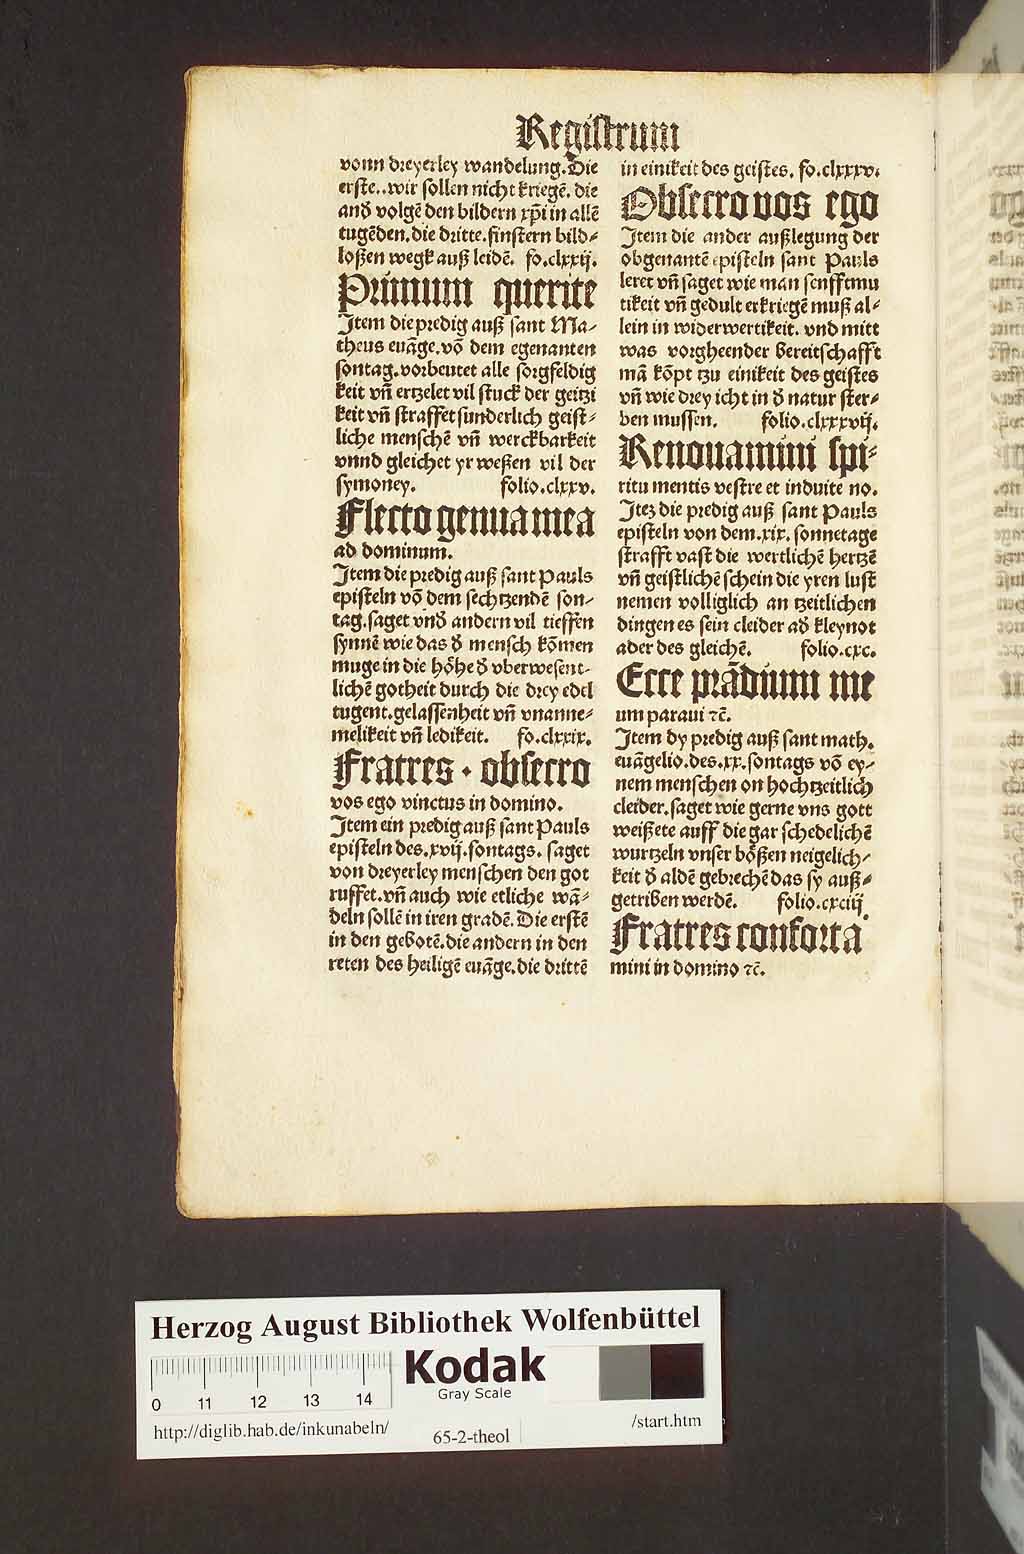 Registrum
vonn dreyerley wandelung. Die
erste..wir sollen nicht kriegē. die
and volgē den bildern xp̄i in allē
tugēden. die dritte. finstern bild⸗
loßen wegk auß leidē. fo.clxxij.
Primum querite
Item die predig auß sant Ma⸗
theus euāge. vō dem egenanten
sontag. vorbeutet alle sorgfeldig
keit vn̄ ertzelet vil stuck der geitzi
keit vn̄ straffet sunderlich geist⸗
liche menschē vn̄ werckbarkeit
vnnd gleichet yr weßen vil der
symoney. folio.clxxv.
Flecto genua mea
ad dominum.
Item die predig auß sant Pauls
episteln vō dem sechtzendē son⸗
tag. saget vnd andern vil tieffen
synnē wie das d mensch kōmen
muge in die höhe d vberwesent⸗
lichē gotheit durch die drey edel
tugent. gelassēnheit vn̄ vnanne⸗
melikeit vn̄ ledikeit. fo.clxxix.
Fratres · obsecro
vos ego vinctus in domino.
Item ein predig auß sant Pauls
episteln des.xvij.sontags. saget
von dreyerley menschen den got
ruffet. vn̄ auch wie etliche wā⸗
deln sollē in iren gradē. Die erstē
in den gebotē. die andern in den
reten des heiligē euāge. die drittē
in einikeit des geistes. fo.clxxxv.
Obsecro vos ego
Item die ander außlegung der
obgenantē episteln sant Pauls
leret vn̄ saget wie man senfftmu
tikeit vn̄ gedult erkriegē muß al⸗
lein in widerwertikeit. vnd mitt
was vorgheender bereitschafft
mā kōpt tzu einikeit des geistes
vn̄ wie drey icht in d natur ster⸗
ben mussen. folio.clxxxvij.
Renouamini spi⸗
ritu mentis vestre et induite no.
Itez die predig auß sant Pauls
episteln von dem.xix. sonnetage
strafft vast die wertlichē hertzē
vn̄ geistlichē schein die yren lust
nemen volliglich an tzeitlichen
dingen es sein cleider ad kleynot
ader des gleichē. folio.cxc.
Ecce prādium me
um paraui ⁊c̄.
Item dy predig auß sant math.
euāgelio. des.xx.sontags vō ey⸗
nem menschen on hochtzeitlich
cleider. saget wie gerne vns gott
weißete auff die gar schedelichē
wurtzeln vnser bößen neigelich⸗
keit d aldē gebrechē das sy auß⸗
getriben werdē. folio.cxciij.
Fratres conforta
mini in domino ⁊c̄.
Herzog August Bibliothek Wolfenbüttel
Kodak
Gray Scale
0 11 12 13 14
http://diglib.hab.de/inkunabeln/
65-2-theol
/start.htm